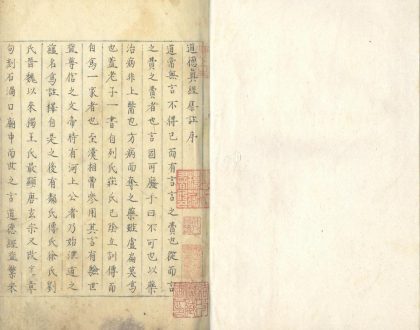 道德真經註序
道常無言不得已而有言言之費也從而註
之費之費者也言固可廢乎曰不可也以藥
治病非上醫也方病而奪之藥雖盧扁莫爲
也蓋老子一書自列氏莊氏已陰立訓傳而
自爲一家者也至漢相曹參用其言有驗世
益尊信之文帝時有河上公者乃始演道之
蘊名爲註釋自是之後有顏氏傅氏徐氏劉
氏晉魏以來獨王氏最顯唐玄宗又改定章
句刻石渦口廟中而世之言道德經益繁